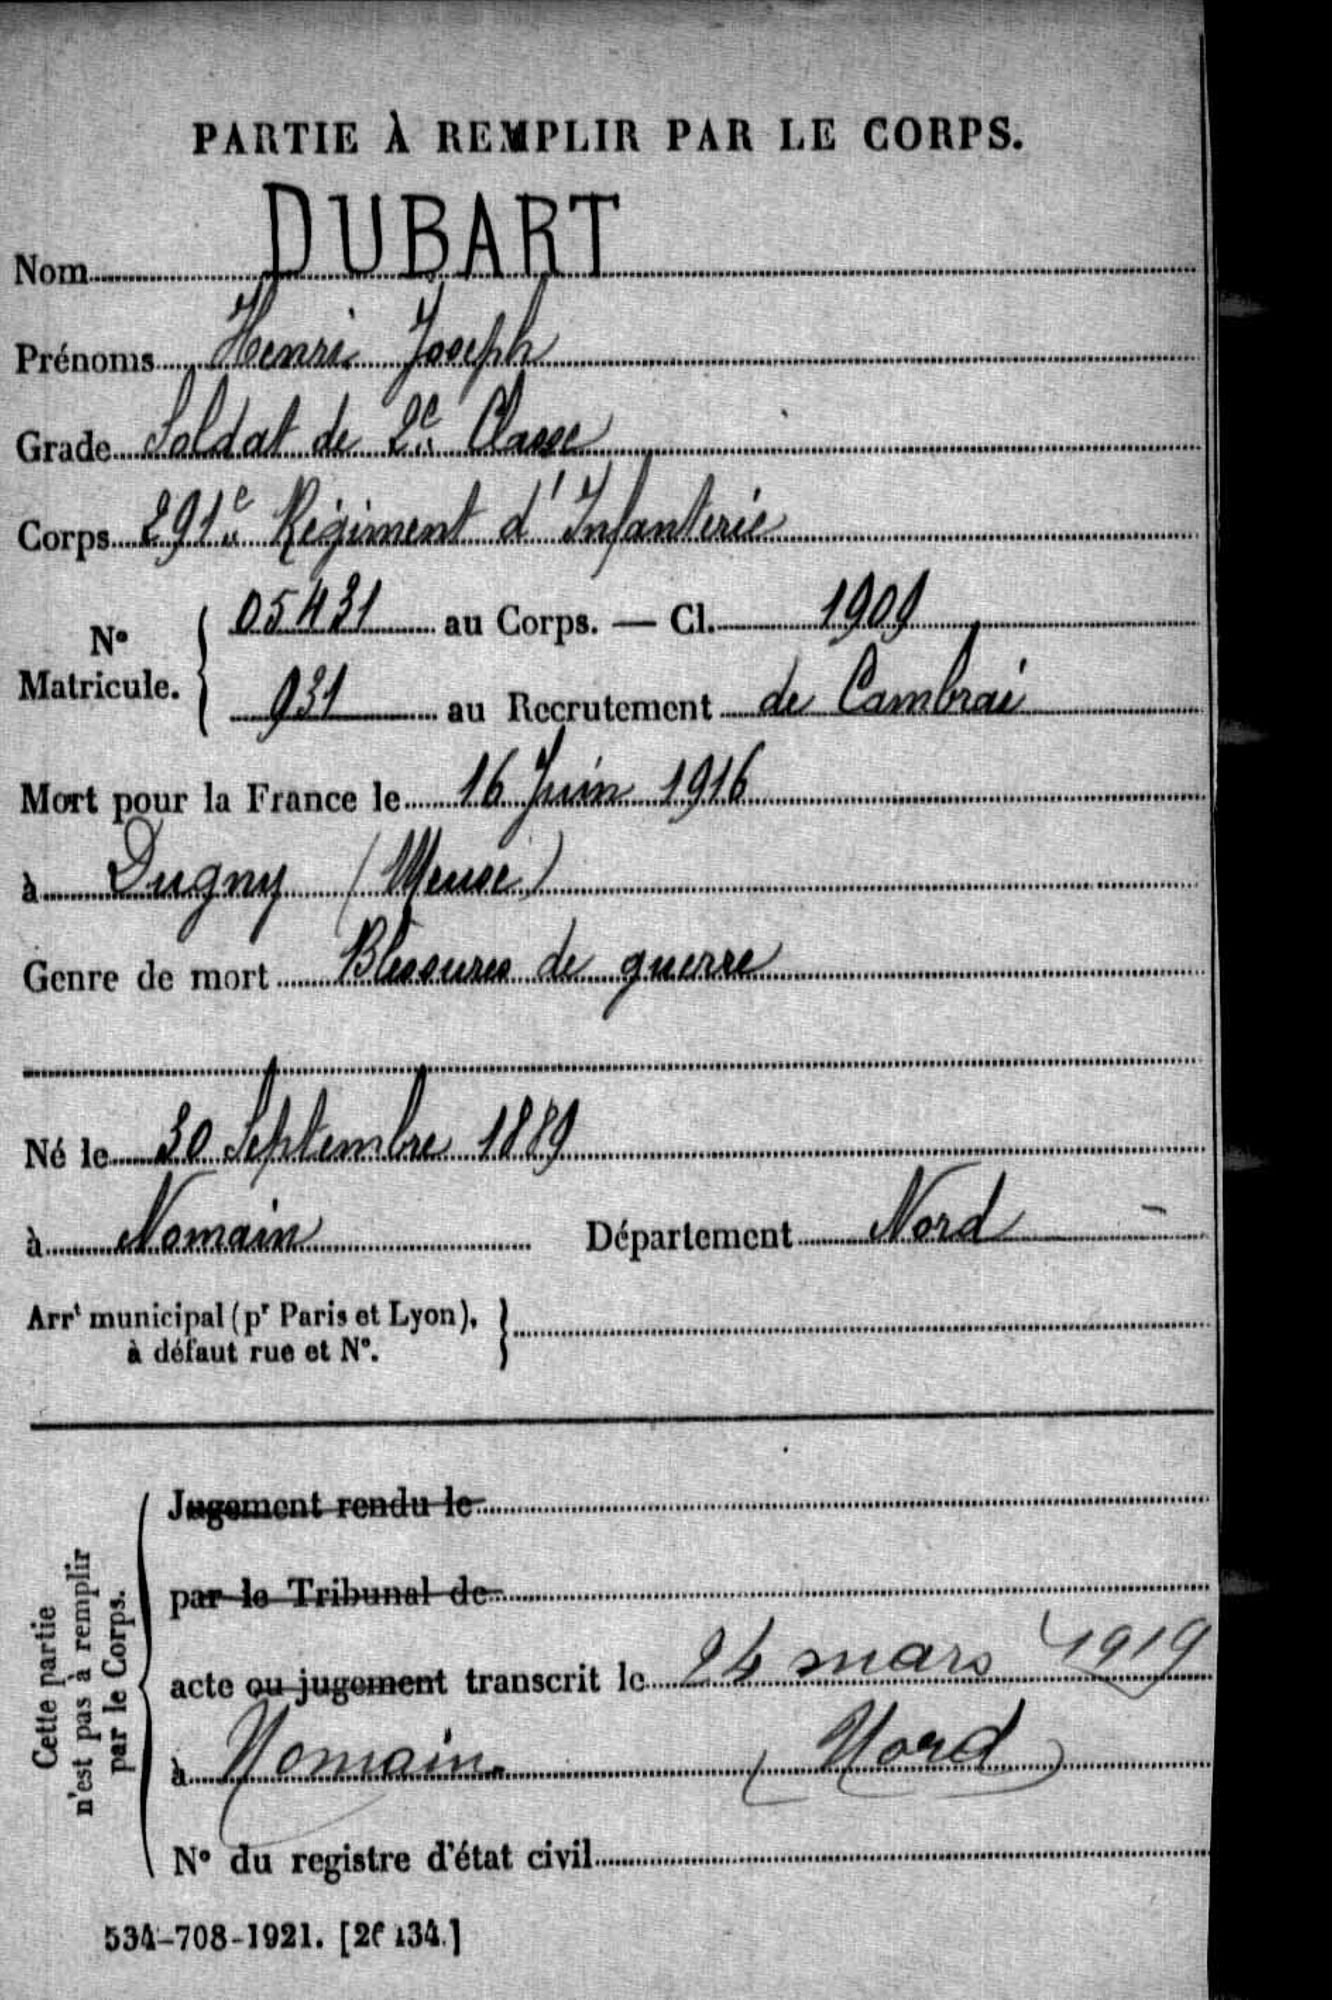 PARTIE À REMPLIR PAR LE CORPS.
Nom DUBART
Prénoms Henri Joseph
Grade Soldat de 2e Classe
Corps 291e Régiment d'Infanterie
N° Matricule. { 05431 au Corps. — Cl. 1909
931 au Recrutement de Cambrai
Mort pour la France le 16 Juin 1916
à Dugny (Meuse)
Genre de mort Blessures de guerre
Né le 30 Septembre 1889
à Nomain Département Nord
Arrt municipal (pr Paris et Lyon), }
à défaut rue et N°.
Cette partie
n'est pas à remplir
par le Corps.
Jugement rendu le
par le Tribunal de
acte ou jugement transcrit le 24 mars 1919
à Nomain (Nord)
N° du registre d'état civil
534-708-1921.